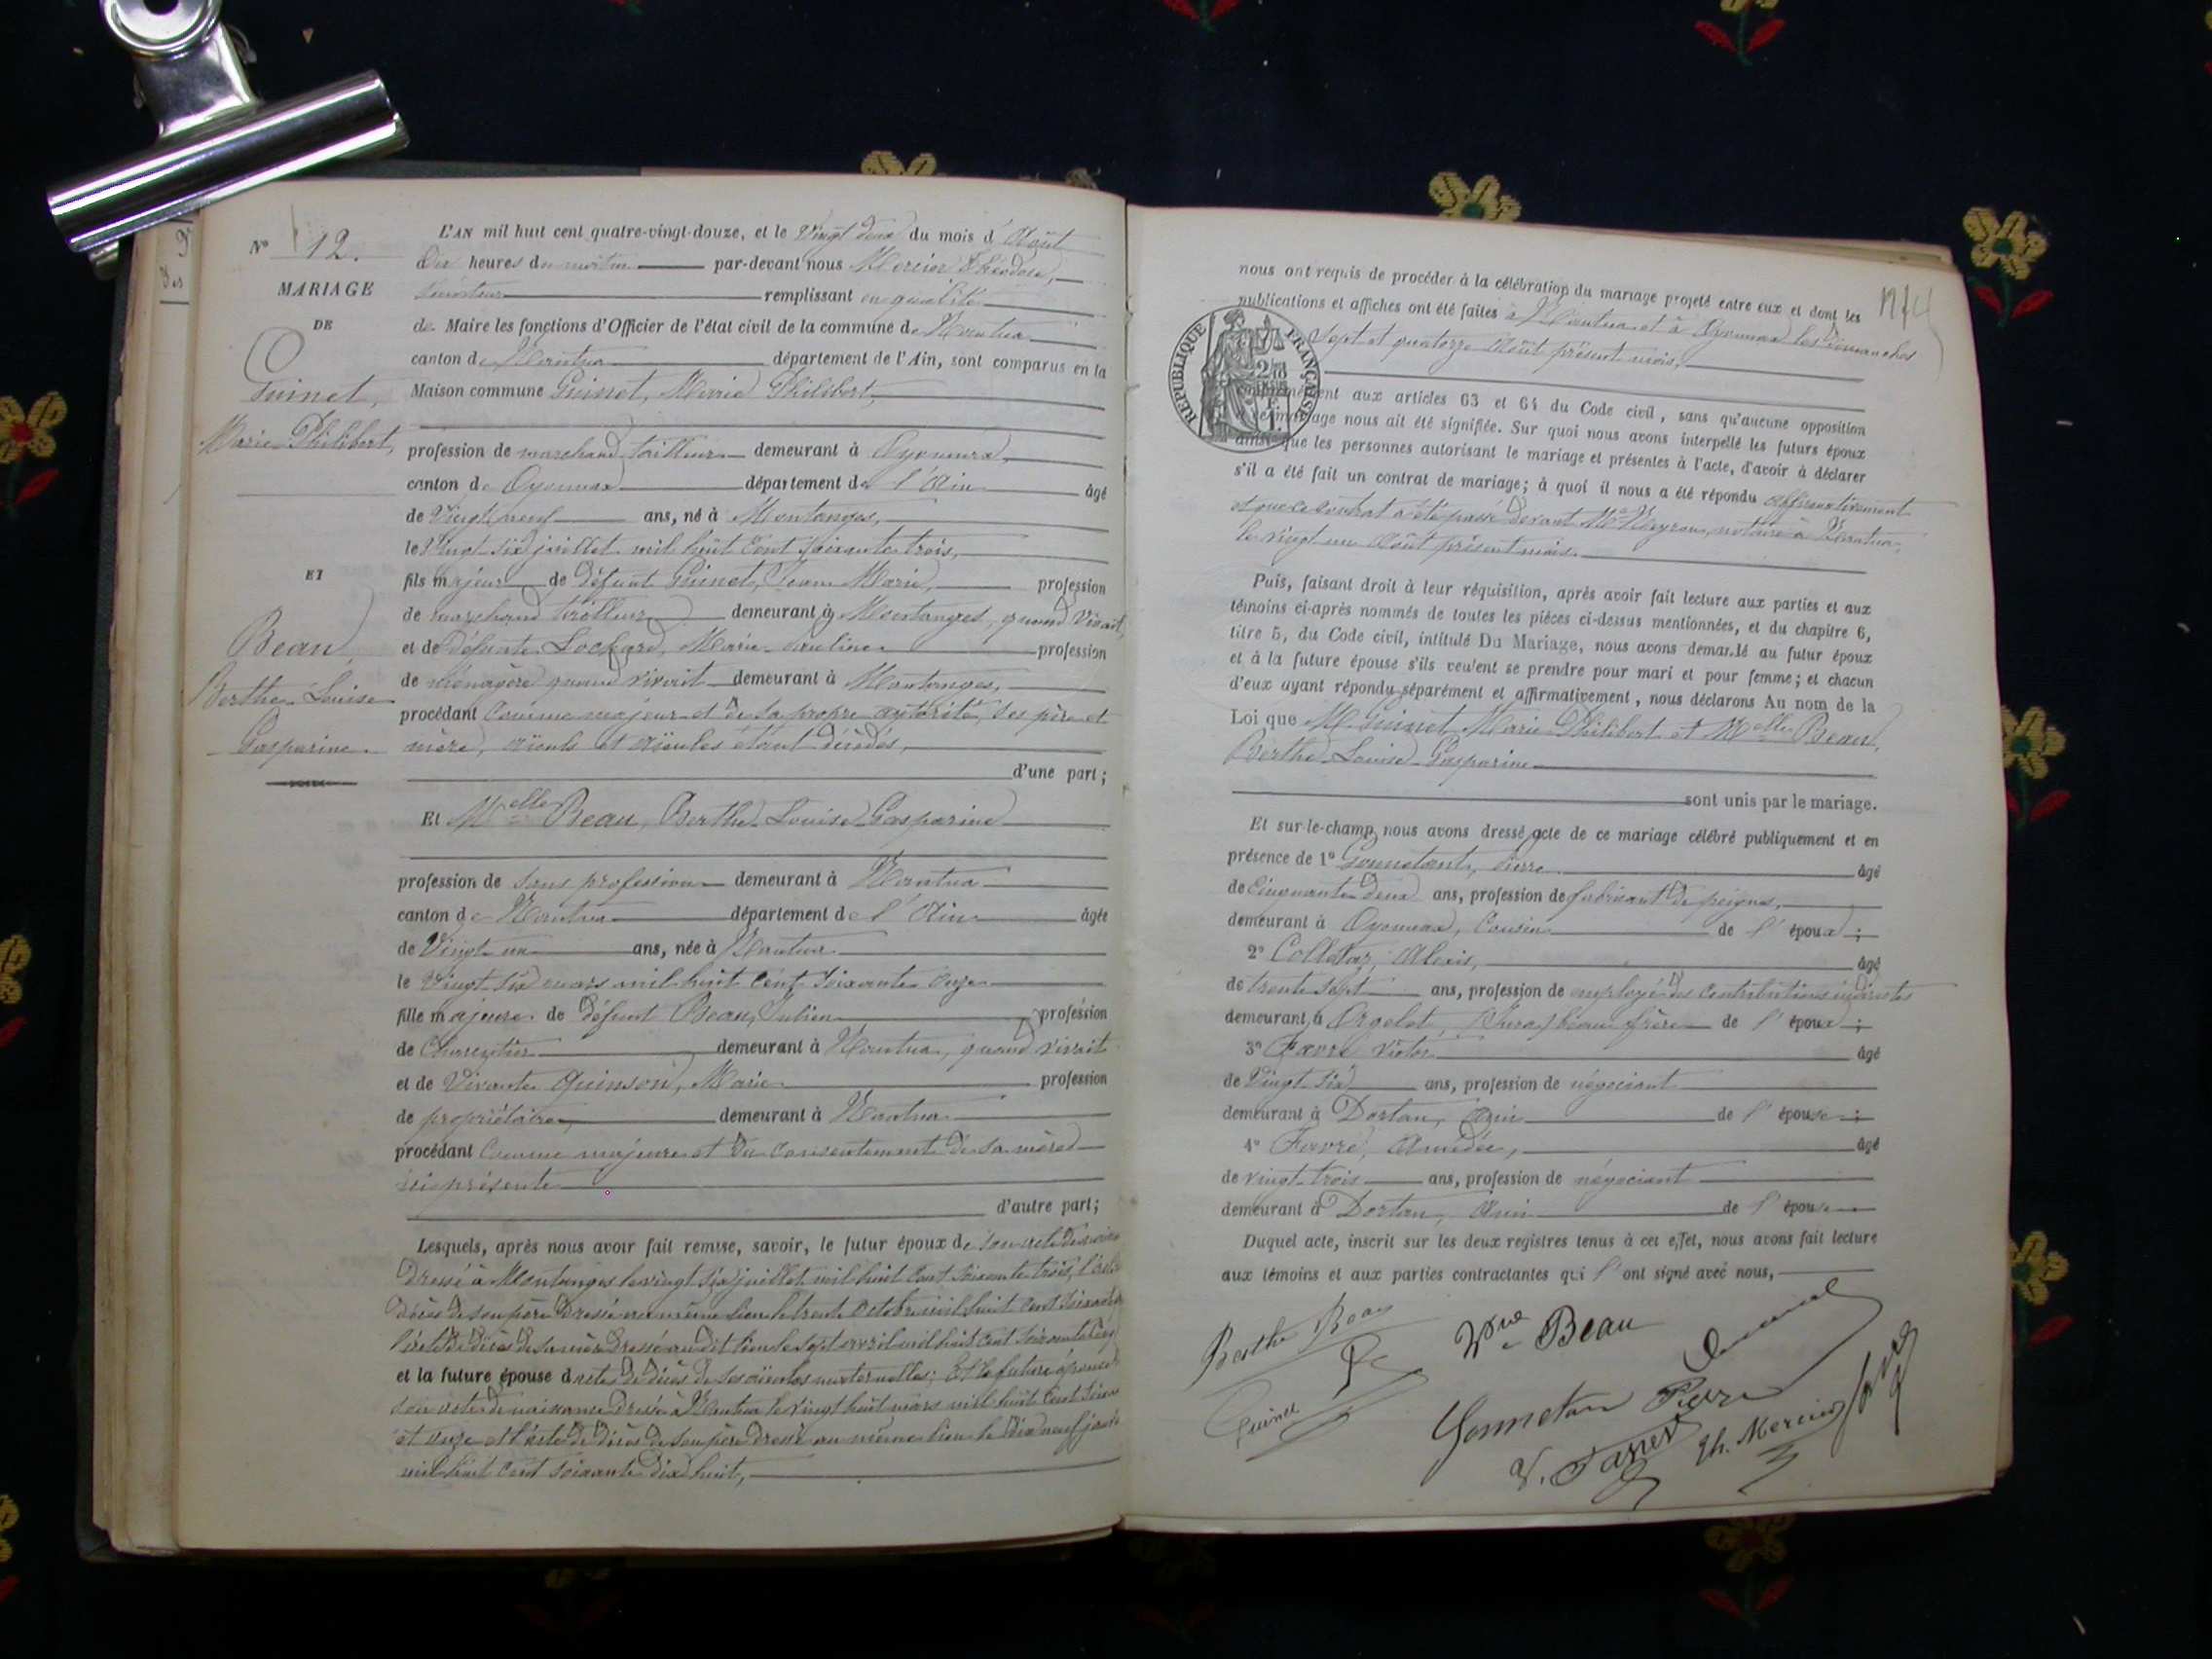 N° 12.
MARIAGE
DE
Guinet,
Marie Philibert,
ET
Beau,
Berthe Louise
Gasparine.
L'AN mil huit cent quatre-vingt-douze, et le Vingt deux du mois d'Août
Dix heures du matin par-devant nous Mercier Théodore,
remplissant en qualité
de Maire les fonctions d'Officier de l'état civil de la commune de Nantua
canton de Nantua département de l'Ain, sont comparus en la
Maison commune Guinet, Marie Philibert,
profession de marchand tailleur demeurant à Oyonnax
canton de Oyonnax département de l'Ain âgé
de Vingt neuf ans, né à Montanges,
le Vingt six juillet mil huit cent soixante trois,
fils majeur de défunt Guinet, Jean Marie, profession
de marchand tailleur demeurant à Montanges, quand vivait,
et de défunte Marie profession
de ménagère quand vivait demeurant à Montanges,
procédant comme majeur et de sa propre autorité, ses père et
mère, aïeuls et aïeules étant décédés,
d'une part;
Et Melle Beau, Berthe Louise Gasparine
profession de sans profession demeurant à Nantua
canton de Nantua département de l'Ain âgée
de Vingt un ans, née à Nantua
le Vingt six mars mil huit cent soixante onze
fille majeure de défunt Beau, Julien profession
de Charpentier demeurant à Nantua, quand vivait
et de Vivante Quinson, Marie profession
de propriétaire, demeurant à Nantua
procédant comme majeure et du consentement de sa mère
ici présente
d'autre part;
Lesquels, après nous avoir fait remise, savoir, le futur époux de son acte de
dressé à Montanges le vingt six juillet mil huit cent soixante trois, l'acte
décès de son père dressé au même lieu le trente octobre mil huit cent
l'acte de décès de sa mère dressé au dit lieu le sept avril mil huit cent
et la future épouse actes de décès de ses aïeules maternelles; Et la future épouse
son acte de naissance dressé à Nantua le vingt huit mars mil huit cent
et onze et l'acte de décès de son père dressé au même lieu le dix neuf
mil huit cent soixante dix huit,
nous ont requis de procéder à la célébration du mariage projeté entre eux et dont les
publications et affiches ont été faites à Nantua et à Oyonnax les dimanches
sept et quatorze Août présent mois,
REPUBLIQUE FRANÇAISE
conformément aux articles 63 et 64 du Code civil, sans qu'aucune opposition
mariage nous ait été signifiée. Sur quoi nous avons interpellé les futurs époux
ainsi que les personnes autorisant le mariage et présentes à l'acte, d'avoir à déclarer
s'il a été fait un contrat de mariage; à quoi il nous a été répondu affirmativement
et que ce contrat a été passé devant Me notaire à Nantua,
le vingt un Août présent mois.
Puis, faisant droit à leur réquisition, après avoir fait lecture aux parties et aux
témoins ci-après nommés de toutes les pièces ci-dessus mentionnées, et du chapitre 6,
titre 5, du Code civil, intitulé Du Mariage, nous avons demandé au futur époux
et à la future épouse s'ils veulent se prendre pour mari et pour femme; et chacun
d'eux ayant répondu séparément et affirmativement, nous déclarons Au nom de la
Loi que M. Guinet Marie Philibert et Melle Beau,
Berthe Louise Gasparine
sont unis par le mariage.
Et sur-le-champ nous avons dressé acte de ce mariage célébré publiquement et en
présence de 1° Gonnetant, Pierre âgé
de Cinquante deux ans, profession de fabricant de peignes,
demeurant à Oyonnax, Cousin de l'époux;
2° Alexis, âgé
de trente sept ans, profession de employé des contributions indirectes
demeurant à Orgelet, (Jura) beau frère de l'époux;
3° Favre Victor âgé
de Vingt six ans, profession de négociant
demeurant à Dortan, Ain de l'épouse;
4° Favre, Amédée, âgé
de vingt trois ans, profession de négociant
demeurant à Dortan, Ain de l'épouse
Duquel acte, inscrit sur les deux registres tenus à cet effet, nous avons fait lecture
aux témoins et aux parties contractantes qui l'ont signé avec nous,
Berthe Beau
Vve Beau
Guinet
Gonnetan Pierre
V. Favre
Th. Mercier